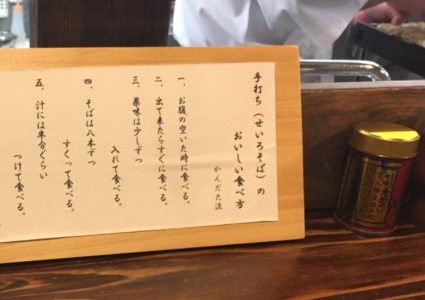 手打ち(せいろそば)の
おいしい食べ方
かんだた流
一、お腹の空いた時に食べる。
二、出て来たらすぐに食べる。
三、薬味は少しずつ
入れて食べる。
四、そばは八本ずつ
すくって食べる。
五、汁には半分ぐらい
つけて食べる。